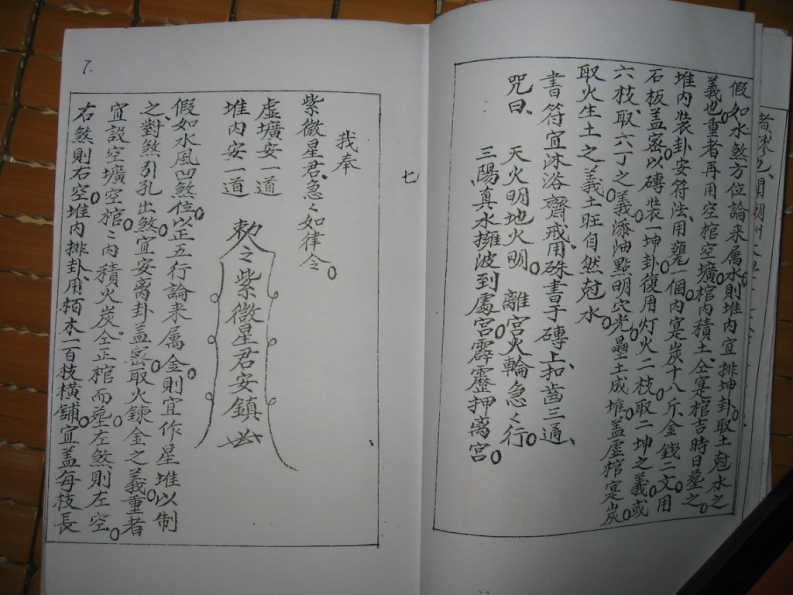 假如水煞方位論來屬水則堆內宜排坤卦取土尅水之
義也重者再用空棺空壙棺內積土仝寔棺吉時日塟之
堆內裝卦安符法用甕一個內寔炭十八斤金錢二文用
石板盖密以磚裝一坤卦復用灯火二枝取二坤之義或
六枝取六丁之義添油點明穴光壘土成堆盖虛棺寔炭
取火生土之義土旺自然尅水
書符宜沐浴齋戒用硃書于磚上扣齒三通
咒曰 天火明地火明 離宮火輪急々行
三陽真水擁波到處宮霹靂押离宮
七
我奉
紫微星君急々如律令
虛壙安一道
堆內安一道
敕令紫微星君安鎮
假如水風凹煞位以正五行論來屬金則宜作星堆以制
之對煞引孔出煞宜安离卦盖密取火鍊金之義重者
宜設空壙空棺內積火炭仝正棺而塟左煞則左空
右煞則右空堆內排卦用栢木一百枝橫舖宜盖每枝長
7.